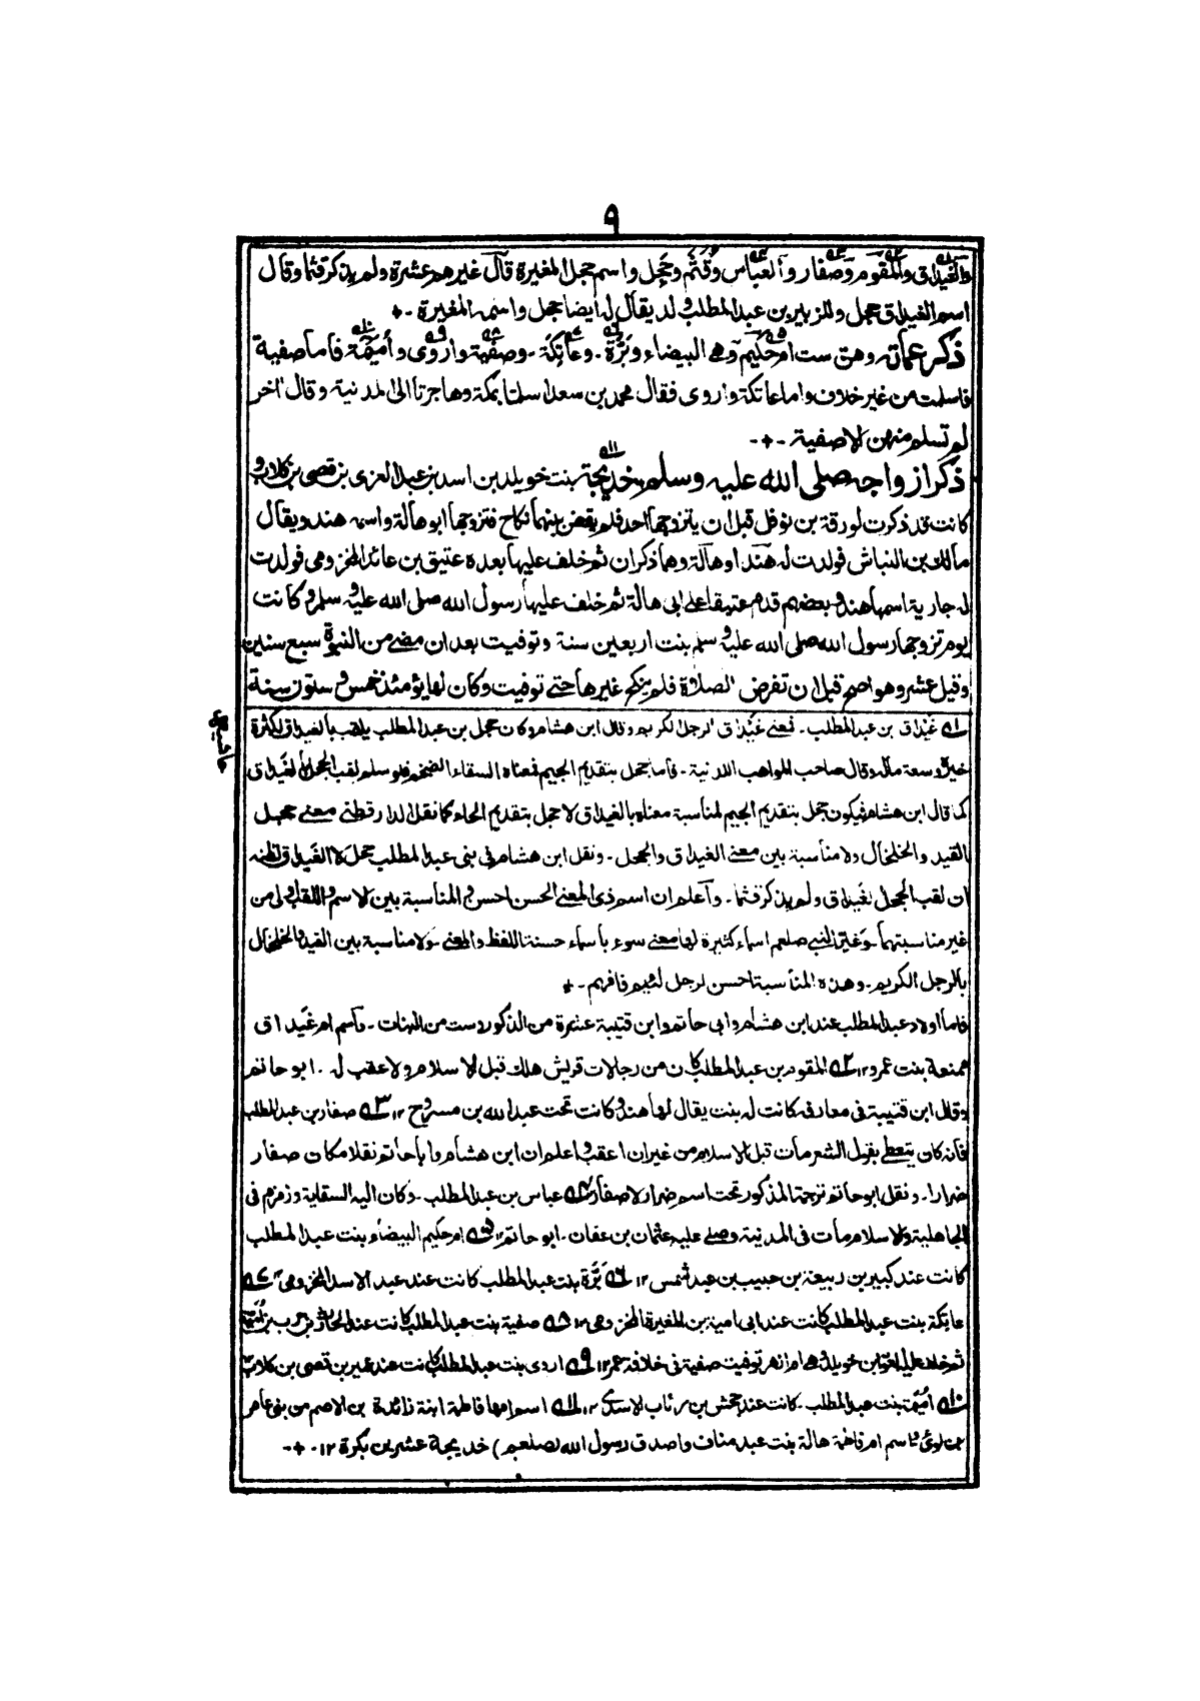 ٩
والغيداق والمقوم وصفار والعباس وقثم وحجل واسم حجل المغيرة قال غيرهم عشرة ولم يذكر قثما وقال
اسم الغيداق حجل وللزبير بن عبد المطلب ولد يقال له ايضا حجل واسمه المغيرة -
ذكر عماته وهن ست ام حكيم وهى البيضاء وبرة - وعاتكة - وصفية واروى وأميمة فاما صفية
فاسلمت من غير خلاف واما عاتكة واروى فقال محمد بن سعد اسلمتا بمكة وهاجرتا الى المدنية وقال آخر
لم تسلم منهن الا صفية -
ذكر ازواجه صلى الله عليه وسلم خديجة بنت خويلد بن اسد بن عبد العزى بن قصى بن كلاب و
كانت قد ذكرت لورقة بن نوفل قبل ان يتزوجها احد فلم يقض بينهما نكاح فتزوجها ابو هالة واسمه هند ويقال
مالك بن النباش فولدت له هندا وهالة وهما ذكران ثم خلف عليها بعده عتيق بن عائذ المخزومى فولدت
له جارية اسمها هند وبعضهم قدم عتيقا على ابى هالة ثم خلف عليها رسول الله صلى الله عليه وسلم و كانت
يوم تزوجها رسول الله صلى الله عليه وسلم بنت اربعين سنة وتوفيت بعد ان مضى من النبوة سبع سنين
وقيل عشر وهو اصح قبل ان تفرض الصلاة فلم ينكح غيرها حتى توفيت وكان لها يومئذ خمس و ستون سنة
حاشية
١ غيداق بن عبد المطلب - فمعنى غيداق الرجل الكريم وقال ابن هشام وكان حجل بن عبد المطلب يلقب بالغيداق لكثرة
خيره وسعة ماله وقال صاحب المواهب اللدنية - فاما جحل بتقديم الجيم فمعناه السقاء الضخم فلو سلم لقب الجحل الغيداق
كما قال ابن هشام فيكون جحل بتقديم الجيم لمناسبة معناه بالغيداق لا حجل بتقديم الحاء كما نقل الدارقطنى معنى حجل
القيد والخلخال ولا مناسبة بين معنى الغيداق والحجل - ونقل ابن هشام فى بنى عبد المطلب حجل لا الغيداق لظنه
ان لقب الحجل غيداق ولم يذكر قثما - وآعلم ان اسم ذى المعنى الحسن احسن والمناسبة بين الاسم واللقب اولى من
غير مناسبتهما - وغير النبى صلعم اسماء كثيرة لها معنى سوء باسماء حسنة اللفظ والمعنى - ولا مناسبة بين القيد والخلخال
بالرجل الكريم - وهذه المناسبة احسن لرجل لئيم فافهم -
فاما اولاد عبد المطلب عند ابن هشام وابى حاتم وابن قتيبة عشرة من الذكور وست من البنات - واسم ام غيداق
ممنعة بنت عمرو ١٢ ٢ المقوم بن عبد المطلب كان من رجالات قريش هلك قبل الاسلام ولا عقب له - ابو حاتم
وقال ابن قتيبة فى معارفه كانت له بنت يقال لها هند وكانت تحت عبد الله بن مسروح ١٢ ٣ صفار بن عبد المطلب
فانه كان يتعطى بقول الشعر مات قبل الاسلام من غير ان اعقب واعلم ان ابن هشام وابا حاتم نقلا مكان صفار
ضرارا - ونقل ابو حاتم ترجمة المذكور تحت اسم ضرار لا صفار ٤ عباس بن عبد المطلب - وكان اليه السقاية وزمزم فى
الجاهلية والاسلام مات فى المدنية وصلى عليه عثمان بن عفان - ابو حاتم ١٢ ٥ ام حكيم البيضاء بنت عبد المطلب
كانت عند كبير بن ربيعة بن حبيب بن عبد شمس ١٢ ٦ برة بنت عبد المطلب كانت عند عبد الاسد المخزومى ١٢ ٧
عاتكة بنت عبد المطلب كانت عند ابى امية بن المغيرة المخزومى ١٢ ٨ صفية بنت عبد المطلب كانت عند الحارث بن حرب بن امية
ثم خلف عليها العوام بن خويلد وهى ام الزبير توفيت صفية فى خلافة عمر ١٢ ٩ اروى بنت عبد المطلب كانت عند عمير بن قصى بن كلاب
١٠ أميمة بنت عبد المطلب - كانت عند جحش بن رئاب الاسدى ١٢ ١١ اسم امها فاطمة ابنة زائدة بن الاصم من بنى عامر
بن لوى واسم ام فاطمة هالة بنت عبد مناف واصدق رسول الله (صلعم) خديجة عشرين بكرة ١٢ -